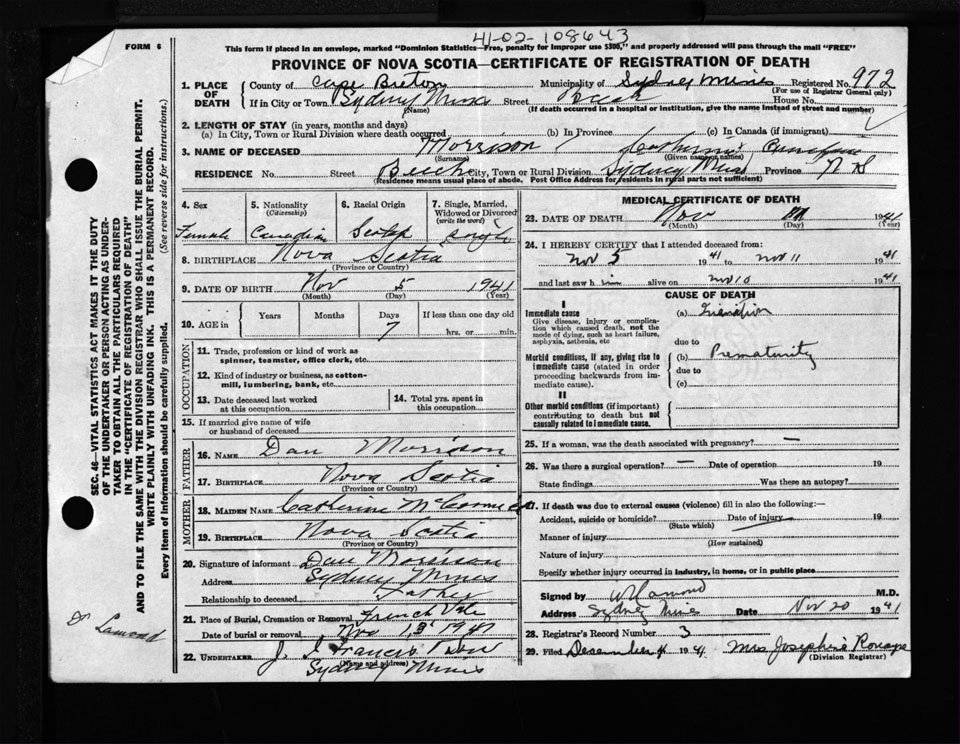 41-02-108643
FORM 6
This form if placed in an envelope, marked "Dominion Statistics—Free, penalty for improper use $300," and properly addressed will pass through the mail "FREE"
PROVINCE OF NOVA SCOTIA—CERTIFICATE OF REGISTRATION OF DEATH
1. PLACE OF DEATH
County of Cape Breton Municipality of Sydney Mines Registered No. 972
(For use of Registrar General only)
If in City or Town Sydney Mines Street House No.
(Name) (If death occurred in a hospital or institution, give the name instead of street and number)
2. LENGTH OF STAY (in years, months and days)
(a) In City, Town or Rural Division where death occurred (b) In Province (c) In Canada (if immigrant)
3. NAME OF DECEASED Morrison Catherine
(Surname) (Given name or names)
RESIDENCE No. Street Beech City, Town or Rural Division Sydney Mines Province N S
(Residence means usual place of abode. Post Office Address for residents in rural parts not sufficient)
4. Sex Female
5. Nationality (Citizenship) Canadian
6. Racial Origin Scotch
7. Single, Married, Widowed or Divorced (write the word) Single
8. BIRTHPLACE Nova Scotia
(Province or Country)
9. DATE OF BIRTH Nov 5 1941
(Month) (Day) (Year)
10. AGE in Years Months Days 7 If less than one day old hrs. or min.
OCCUPATION
11. Trade, profession or kind of work as spinner, teamster, office clerk, etc.
12. Kind of industry or business, as cotton-mill, lumbering, bank, etc.
13. Date deceased last worked at this occupation
14. Total yrs. spent in this occupation
15. If married give name of wife or husband of deceased
FATHER
16. NAME Dan Morrison
17. BIRTHPLACE Nova Scotia
(Province or Country)
MOTHER
18. MAIDEN NAME Catherine
19. BIRTHPLACE Nova Scotia
(Province or Country)
20. Signature of informant Dan Morrison
Address Sydney Mines
Relationship to deceased Father
21. Place of Burial, Cremation or Removal French Vale
Date of burial or removal Nov 13 1941
22. UNDERTAKER J. J. Francis
(Name and address)
Sydney Mines
MEDICAL CERTIFICATE OF DEATH
23. DATE OF DEATH Nov 1941
(Month) (Day) (Year)
24. I HEREBY CERTIFY that I attended deceased from:
Nov 5 1941 to Nov 11 1941
and last saw h im alive on Nov 10 1941
CAUSE OF DEATH
I
Immediate cause
Give disease, injury or complication which caused death, not the mode of dying, such as heart failure, asphyxia, asthenia, etc
(a) Inanition
due to
Morbid conditions, if any, giving rise to immediate cause (stated in order proceeding backwards from immediate cause).
(b) Prematurity
due to
(c)
II
Other morbid conditions (if important) contributing to death but not causally related to immediate cause.
25. If a woman, was the death associated with pregnancy? —
26. Was there a surgical operation? — Date of operation 19
State findings Was there an autopsy?
27. If death was due to external causes (violence) fill in also the following:—
Accident, suicide or homicide? Date of injury 19
(State which)
Manner of injury
(How sustained)
Nature of injury
Specify whether injury occurred in industry, in home, or in public place
Signed by Lamond M.D.
Address Sydney Mines Date Nov 20 1941
28. Registrar's Record Number 3
29. Filed December 4 1941 Mrs Josephine
(Division Registrar)
SEC. 46—VITAL STATISTICS ACT MAKES IT THE DUTY
OF THE UNDERTAKER OR PERSON ACTING AS UNDERTAKER TO OBTAIN ALL THE PARTICULARS REQUIRED
IN THE "CERTIFICATE OF REGISTRATION OF DEATH"
AND TO FILE THE SAME WITH THE DIVISION REGISTRAR WHO SHALL ISSUE THE BURIAL PERMIT.
WRITE PLAINLY WITH UNFADING INK. THIS IS A PERMANENT RECORD.
Every item of information should be carefully supplied. (See reverse side for instructions.)
Dr Lamond